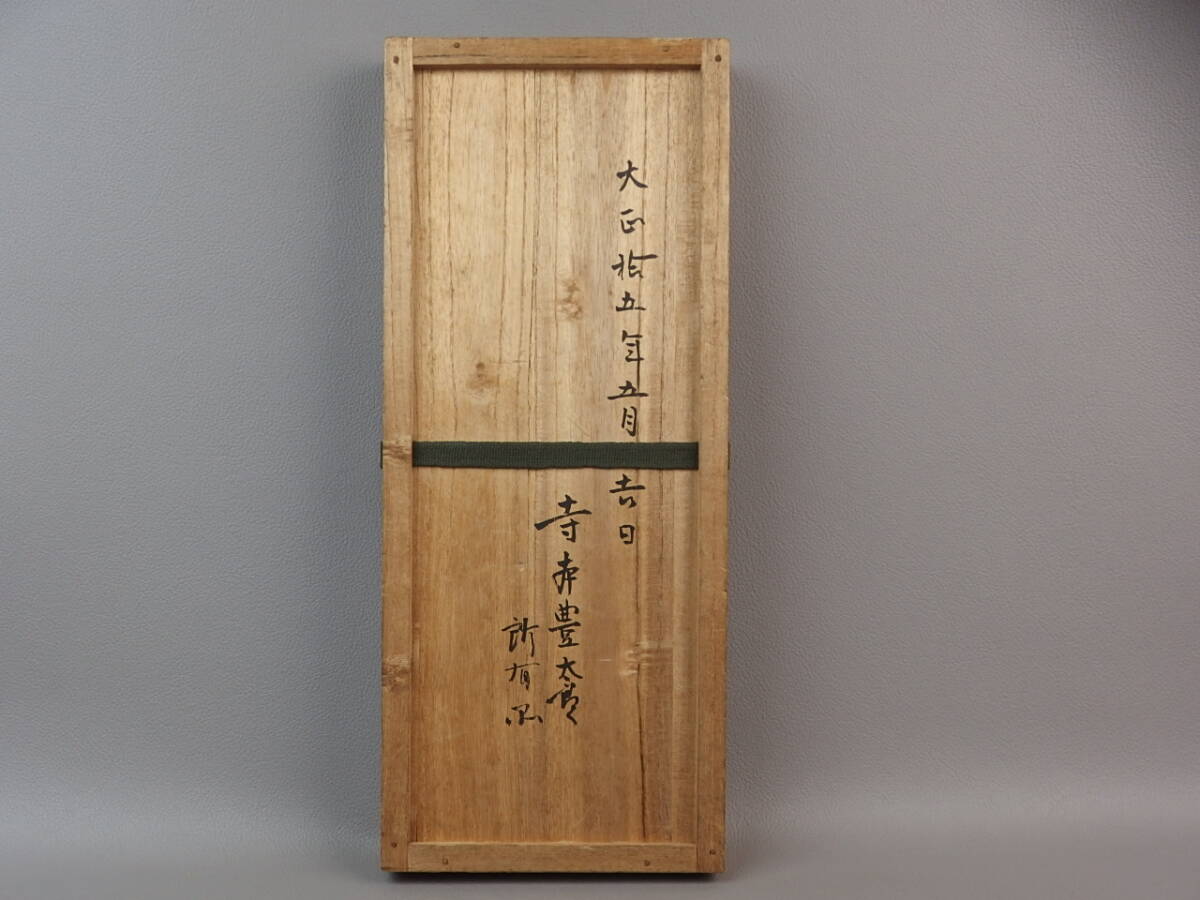 大正拾五年五月吉日
寺本豊太郎
所有品